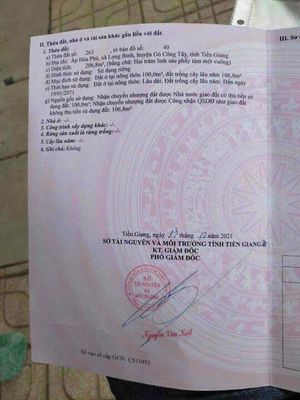 II. Thửa đất, nhà ở và tài sản khác gắn liền với đất
1. Thửa đất:
a) Thửa đất số: 263 , tờ bản đồ số: 40
b) Địa chỉ: Ấp Hòa Phú, xã Long Bình, huyện Gò Công Tây, tỉnh Tiền Giang
c) Diện tích: 206,8m², (bằng chữ: Hai trăm linh sáu phẩy tám mét vuông)
d) Hình thức sử dụng: Sử dụng riêng
đ) Mục đích sử dụng: Đất ở tại nông thôn 100,0m², đất trồng cây lâu năm 106,8m²
e) Thời hạn sử dụng: Đất ở tại nông thôn: Lâu dài; Đất trồng cây lâu năm: Đến ngày
19/01/2071
g) Nguồn gốc sử dụng: Nhận chuyển nhượng đất được Nhà nước giao đất có thu tiền sử
dụng đất: 100,0m²; Nhận chuyển nhượng đất được Công nhận QSDĐ như giao đất
không thu tiền sử dụng đất: 106,8m²
2. Nhà ở: -/-.
3. Công trình xây dựng khác: -/-.
4. Rừng sản xuất là rừng trồng: -/-.
5. Cây lâu năm: -/-.
6. Ghi chú: Không
III. Sơ
Tiền Giang, ngày 13 tháng 12 năm 2021
SỞ TÀI NGUYÊN VÀ MÔI TRƯỜNG TỈNH TIỀN GIANG
KT. GIÁM ĐỐC
PHÓ GIÁM ĐỐC
SỞ
TÀI NGUYÊN
VÀ
MÔI TRƯỜNG
Nguyễn Văn
Số vào sổ cấp GCN: CS11953